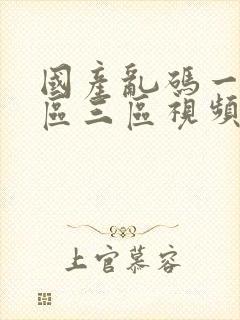 國產亂碼一
區三區視頻
上官慕容